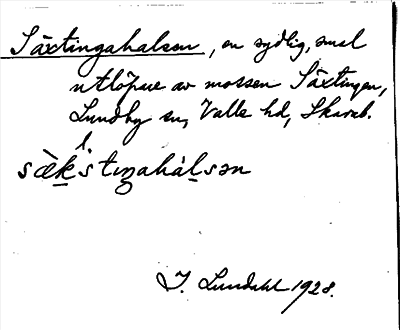 Säxtingahalsen, en sydlig, smal
utlöpare av mossen Säxtingen,
Lundby sn, Valle hd, Skarab.
l.
sæ̀kstiŋahálsən
I. Lundahl 1928.